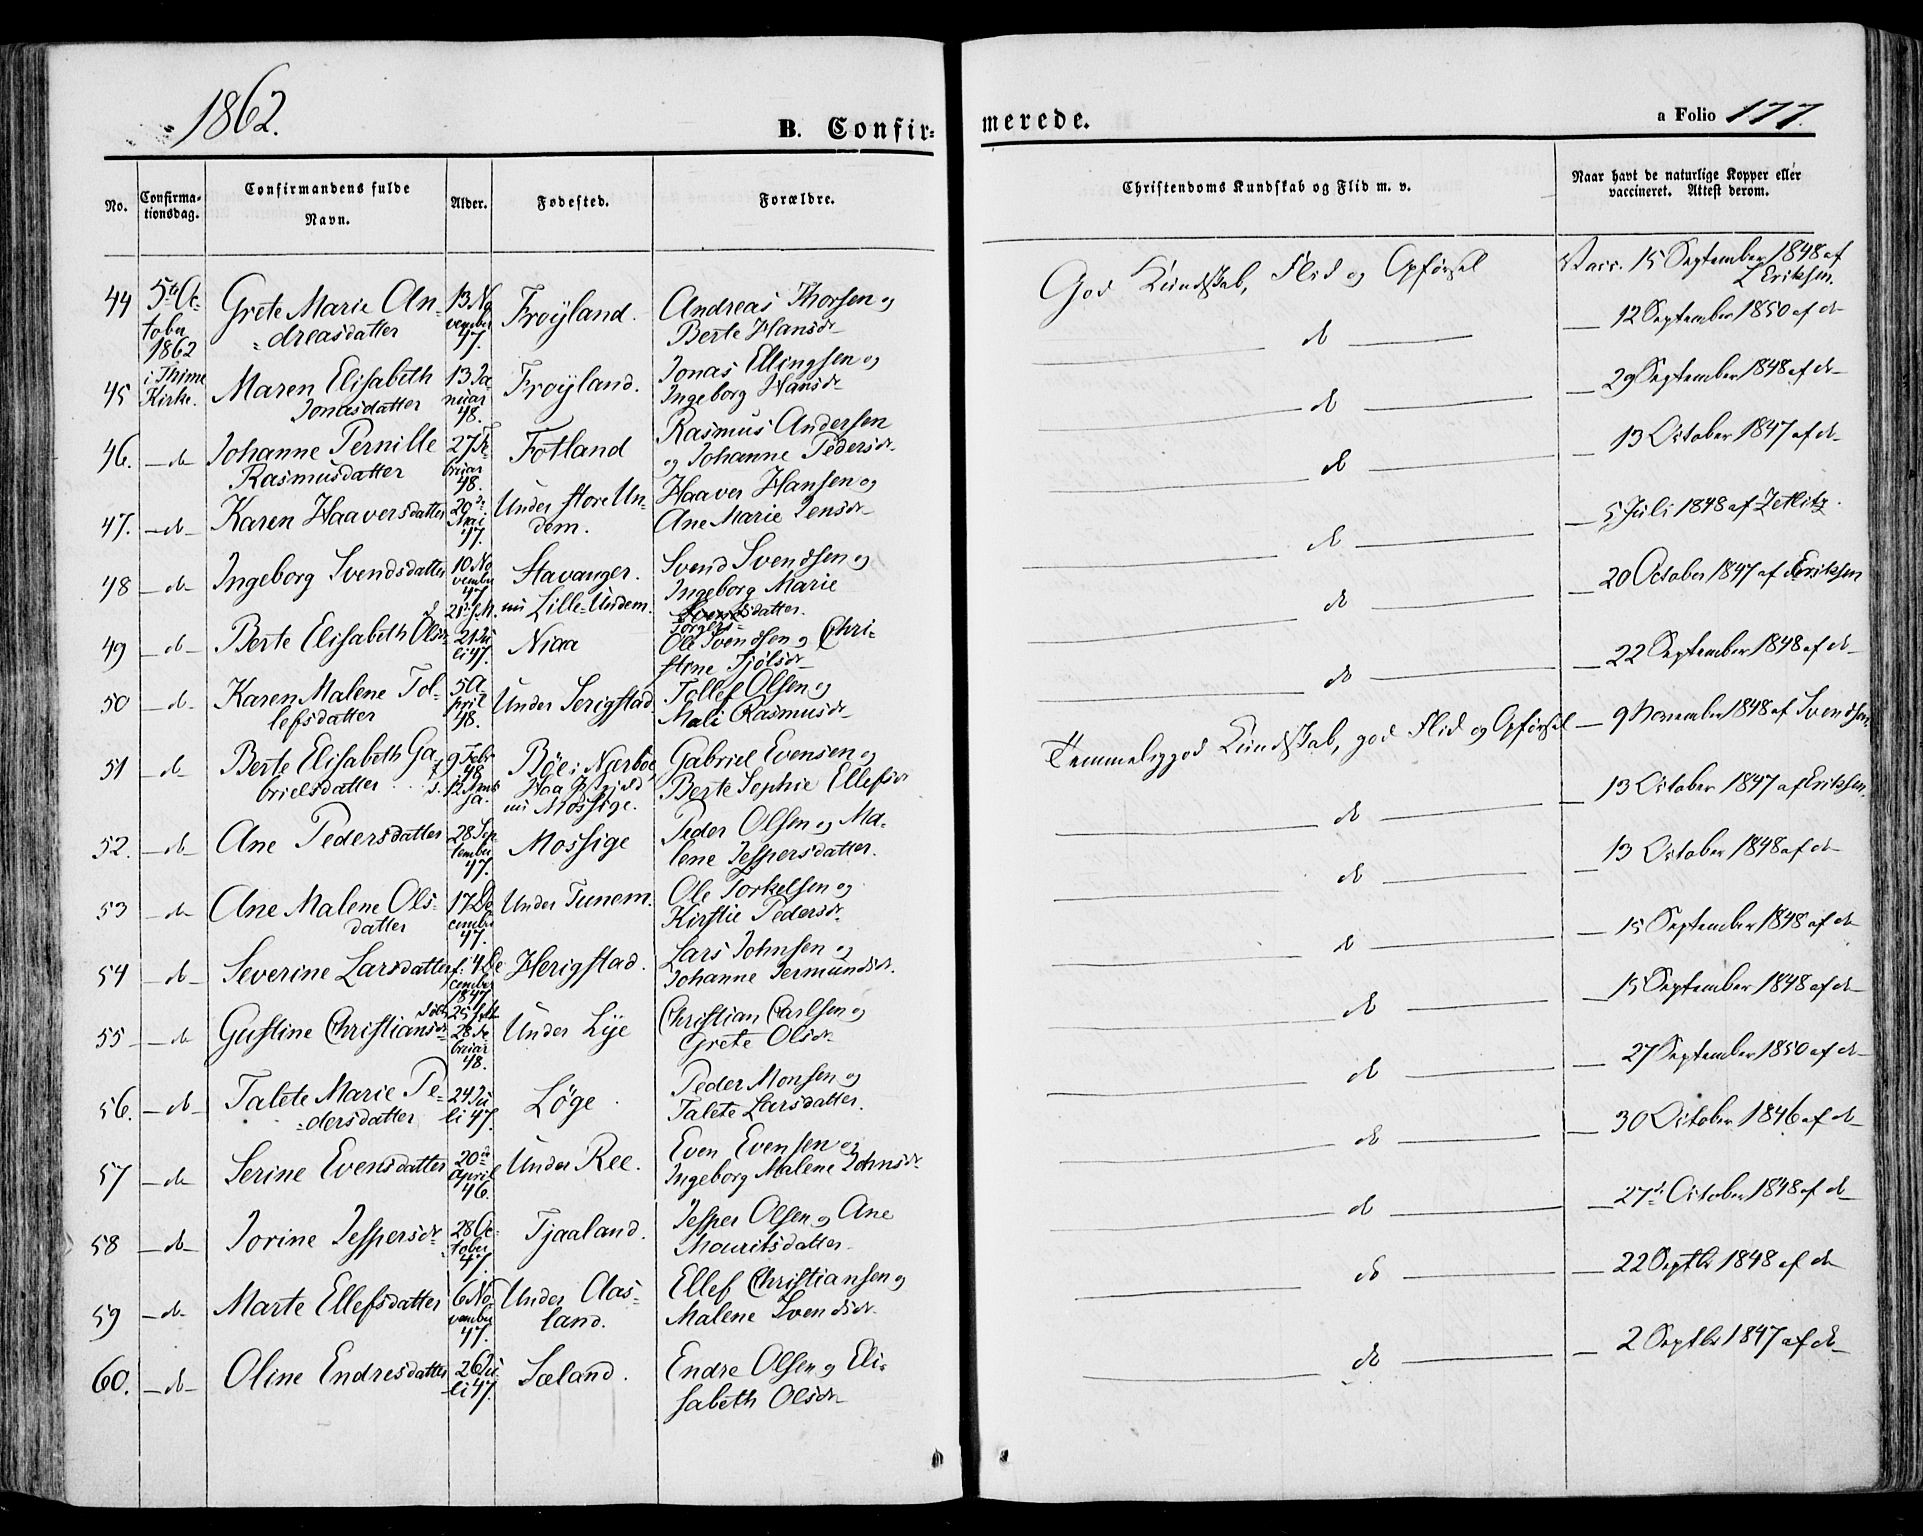 1862.
B. Confir-
merede.
a Folio 177.
No.
Confirma-
tionsdag.
Confirmandens fulde
Navn.
Alder.
Fødested.
Forældre.
Christendoms Kundskab og Flid m. v.
Naar havt de naturlige Kopper eller
vaccineret. Attest derom.
44 5te Oc-
tober
1862
i Thime
Kirke.
Grete Marie An-
dreasdatter
13 No
vember
47.
Frøyland.
Andreas Thorsen og
Berte Hansdr
God Kundskab, Flid og Opførsel
Vacc. 15 September 1848 af
L Eriksen.
45 Maren Elisabeth
Jonasdatter
13 Ja
nuar
48.
Frøyland.
Jonas Ellingsen og
Ingeborg Hansdr
do
12 September 1850 af do
46. do Johanne Pernille
Rasmusdatter
27 Fe
bruar
48.
Fotland
Rasmus Andersen
og Johanne Pedersdr
do
29 September 1848 af do
47. do Karen Haaversdatter
29de
Mai
47.
Under store Un-
dem.
Haaver Hansen og
Ane Marie Jensdr
do
13 October 1847 af do
48 do Ingeborg Svendsdatter
10 No
vember
47
Stavanger.
nu Lille-Undem.
Svend Svendsen og
Ingeborg Marie
Torgers-
datter.
do
5 Juli 1848 af Zetlitz.
49 do Berte Elisabeth Olsdr
21 Ju
li 47.
Niaa
Ole Svendsen og Chri-
stine Fjølsdr
do
20 October 1847 af Eriksen
50 do Karen Malene Tol-
lefsdatter
5 A-
pril
48.
Under Serigstad
Tollef Olsen og
Mali Rasmusdr
do
22 September 1848 af do
51 do Berte Elisabeth Ga-
brielsdatter
9 Febr
48
Bøe i Nærbøe,
Haa
nu Mossige.
Gabriel Evensen og
Berte Sophie Ellefsdr
Temmelig god Kundskab, god Flid og Opførsel
9 November 1848 af Svendsen.
52. do Ane Pedersdatter
28 Sep
tember
47.
Mossige
Peder Olsen og Ma-
lene Jespersdatter.
do
13 October 1847 af Eriksen.
53 do Ane Malene Ols-
datter
17 De
cember
47.
Under Tunem.
Ole Torkelsen og
Kirstie Pedersdr
do
13 October 1848 af do
54 do Severine Larsdatter
f. 4 De
cember
1847
Herigstad.
Lars Johnsen og
Johanne Jermundsdr.
do
15 September 1848 af do
55 do Gustine Christiansdr
28 Fe
bruar
48.
Under Lye
Christian Carlsen og
Grete Olsdr
do
15 September 1848 af do
56. do Talete Marie Pe-
dersdatter
24 Ju
li 47.
Løge.
Peder Monsen og
Talete Larsdatter.
do
27 September 1850 af do
57 do Serine Evensdatter
20de
April
46.
Under Ree.
Even Evensen og
Ingeborg Malene Johnsdr
do
30 October 1846 af do
58 do Jorine Jespersdr
28 Oc
tober
47.
Tjaaland.
Jesper Olsen og Ane
Mouritsdatter
do
27de October 1848 af do
59 do Marte Ellefsdatter
6 No
vember
47.
Under Aas-
land.
Ellef Christiansen og
Malene Svendsdr.
do
22 Septbr 1848 af do
60. do Oline Endresdatter
26 Ju-
li 47.
Sæland.
Endre Olsen og Eli-
sabeth Olsdr
do
2 Septbr 1847 af do